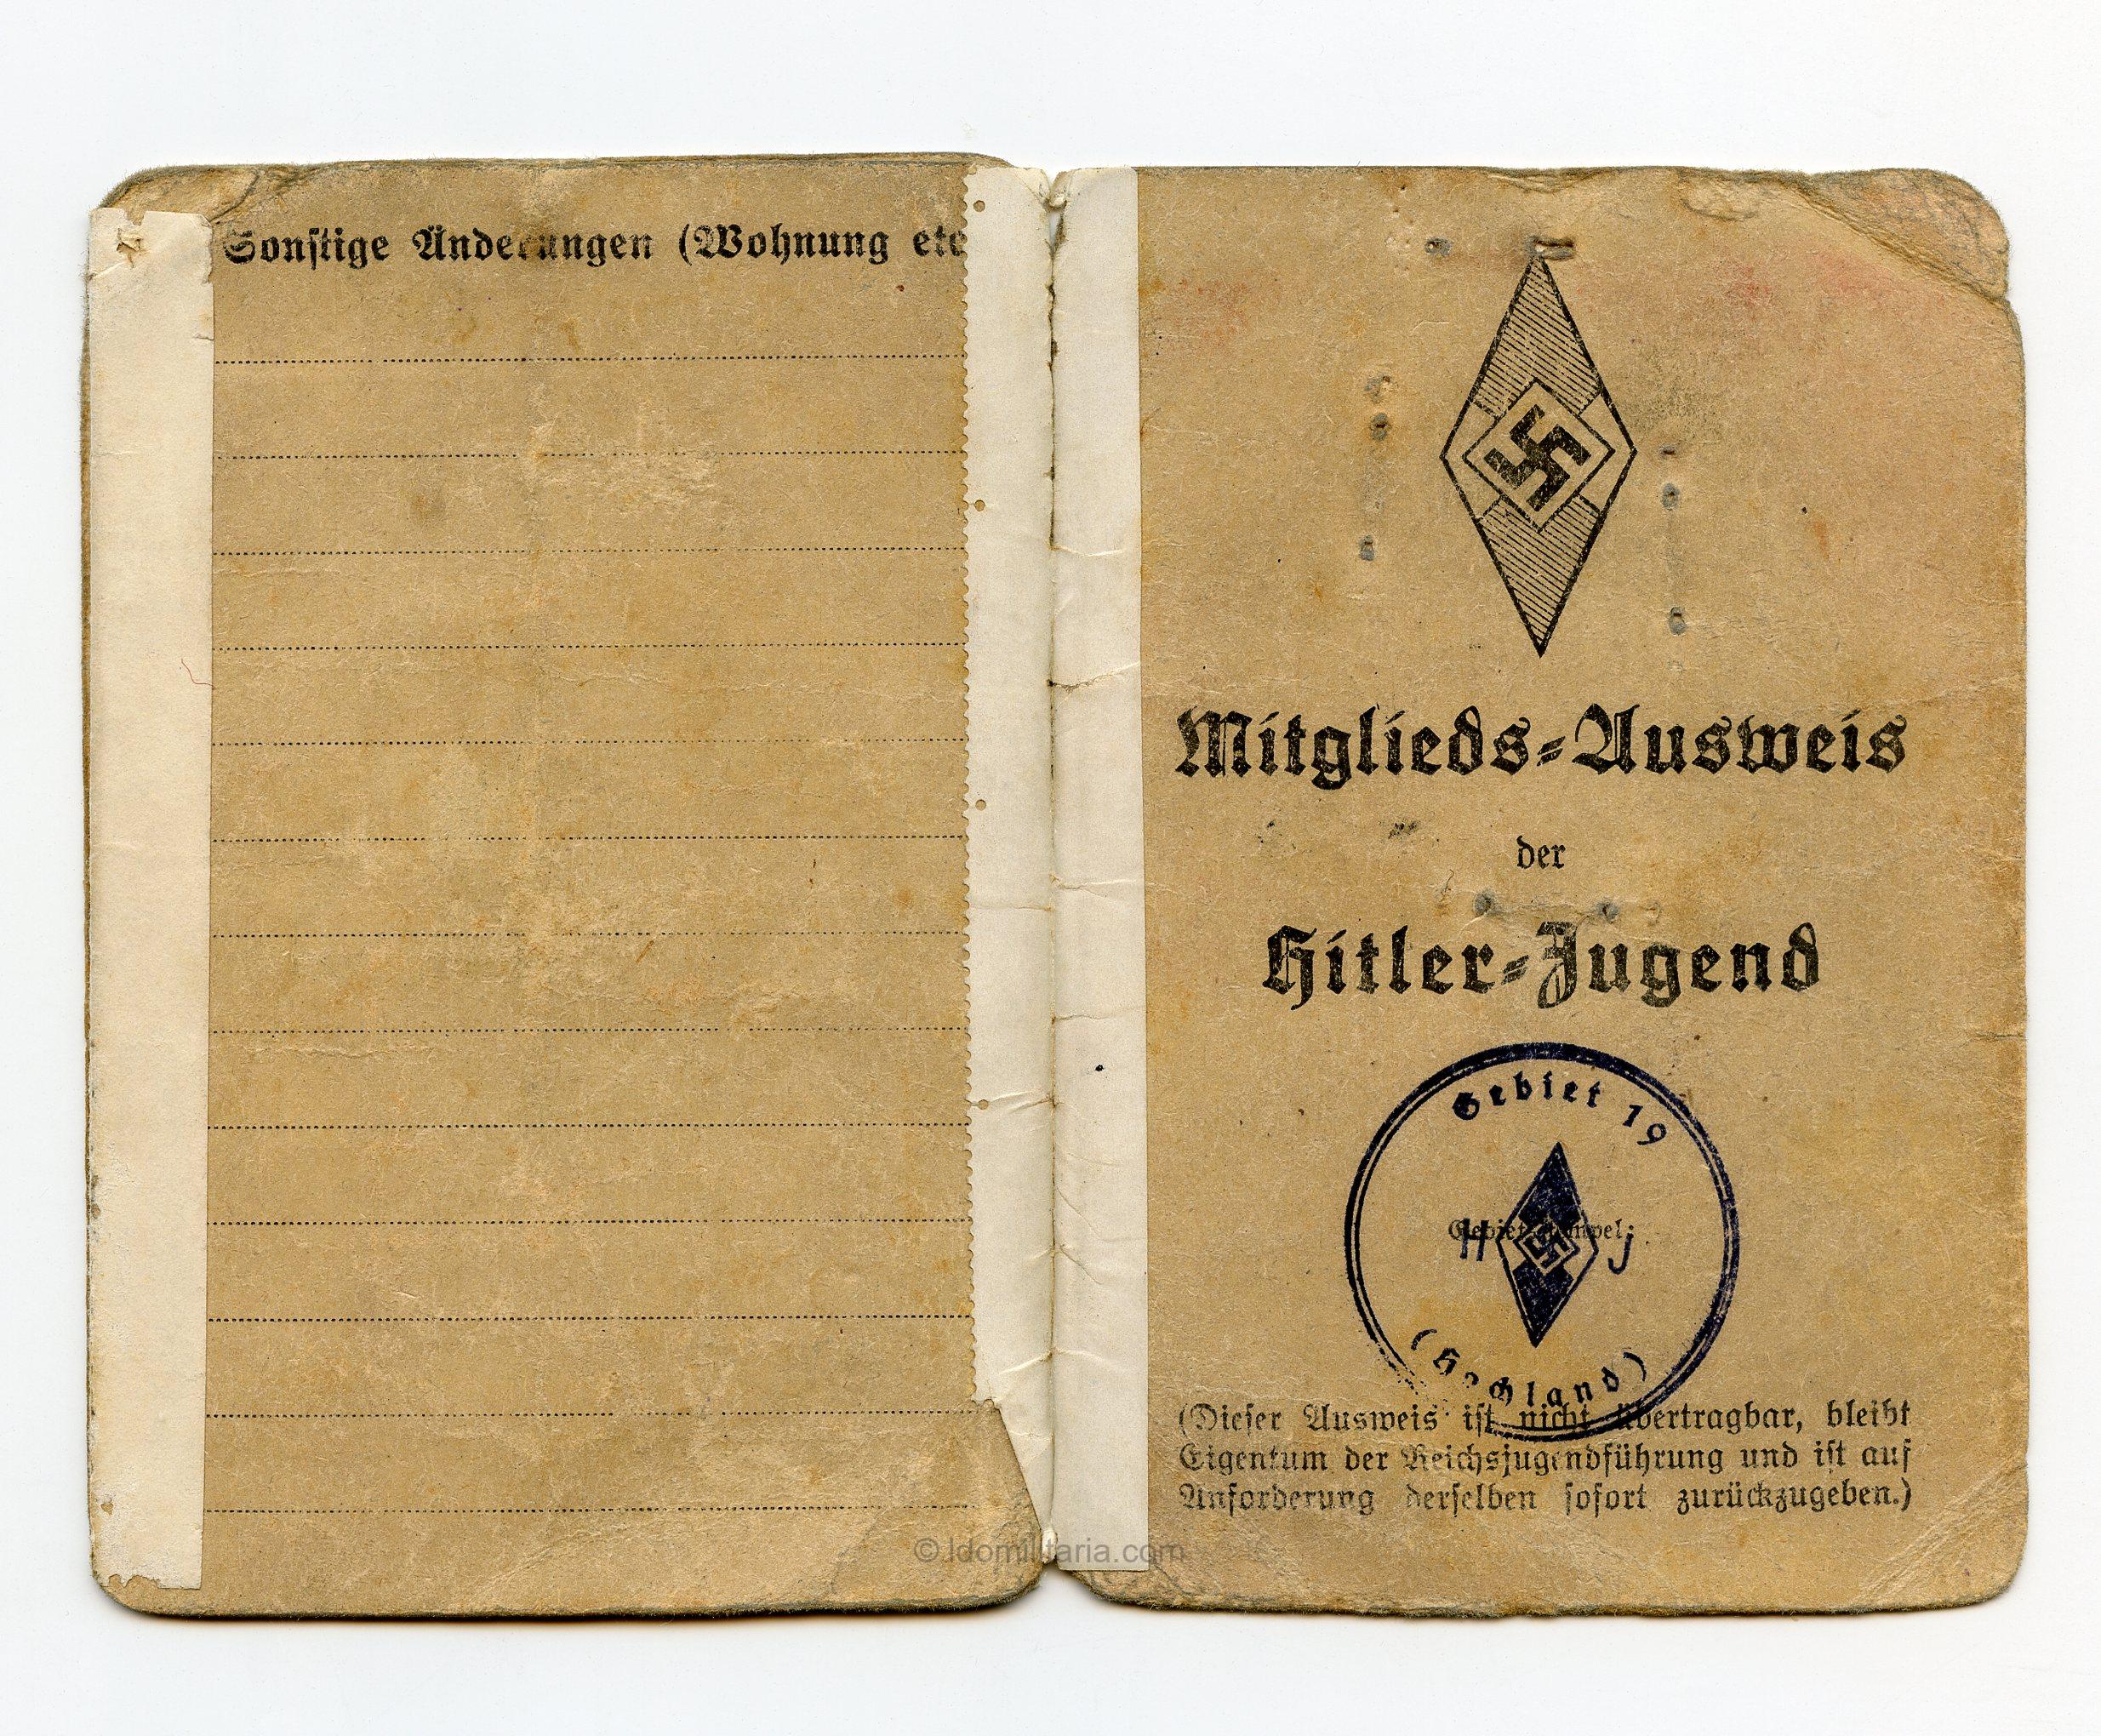 Sonstige Änderungen (Wohnung etc
Mitglieds-Ausweis
der
Hitler-Jugend
Gebiet 19
Gebietsstempel:
H J
(Hochland)
(Dieser Ausweis ist nicht übertragbar, bleibt
Eigentum der Reichsjugendführung und ist auf
Anforderung derselben sofort zurückzugeben.)
© ldomilitaria.com